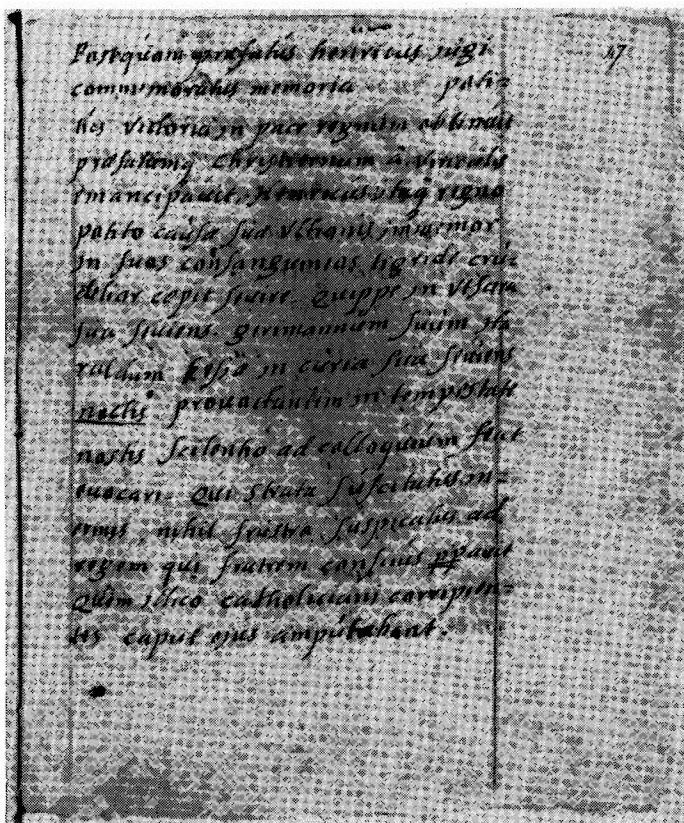 Postquam præfatus henricus sigi 17
commemoratus memoria poti=
tus victoria in pace regnum obtinuit
præfatumq Christiernum a vinculis
emancipavit. Henricus itaq regno
potito causa sua ultionis immemor
in suos consanguineos tigride cru=
delior cepit sevire. Quippe in viscera
sua seviens germannum suum Ha
raldum in curia sua sediens
noctis in tempestate
noctis silentio ad colloquium fecit
evocari. Qui strata suscitatus in=
ermis nihil frustra suspicatus ad
regem qui fratrem
Quem illico catholiciani corripien=
tes caput ejus amputabant.